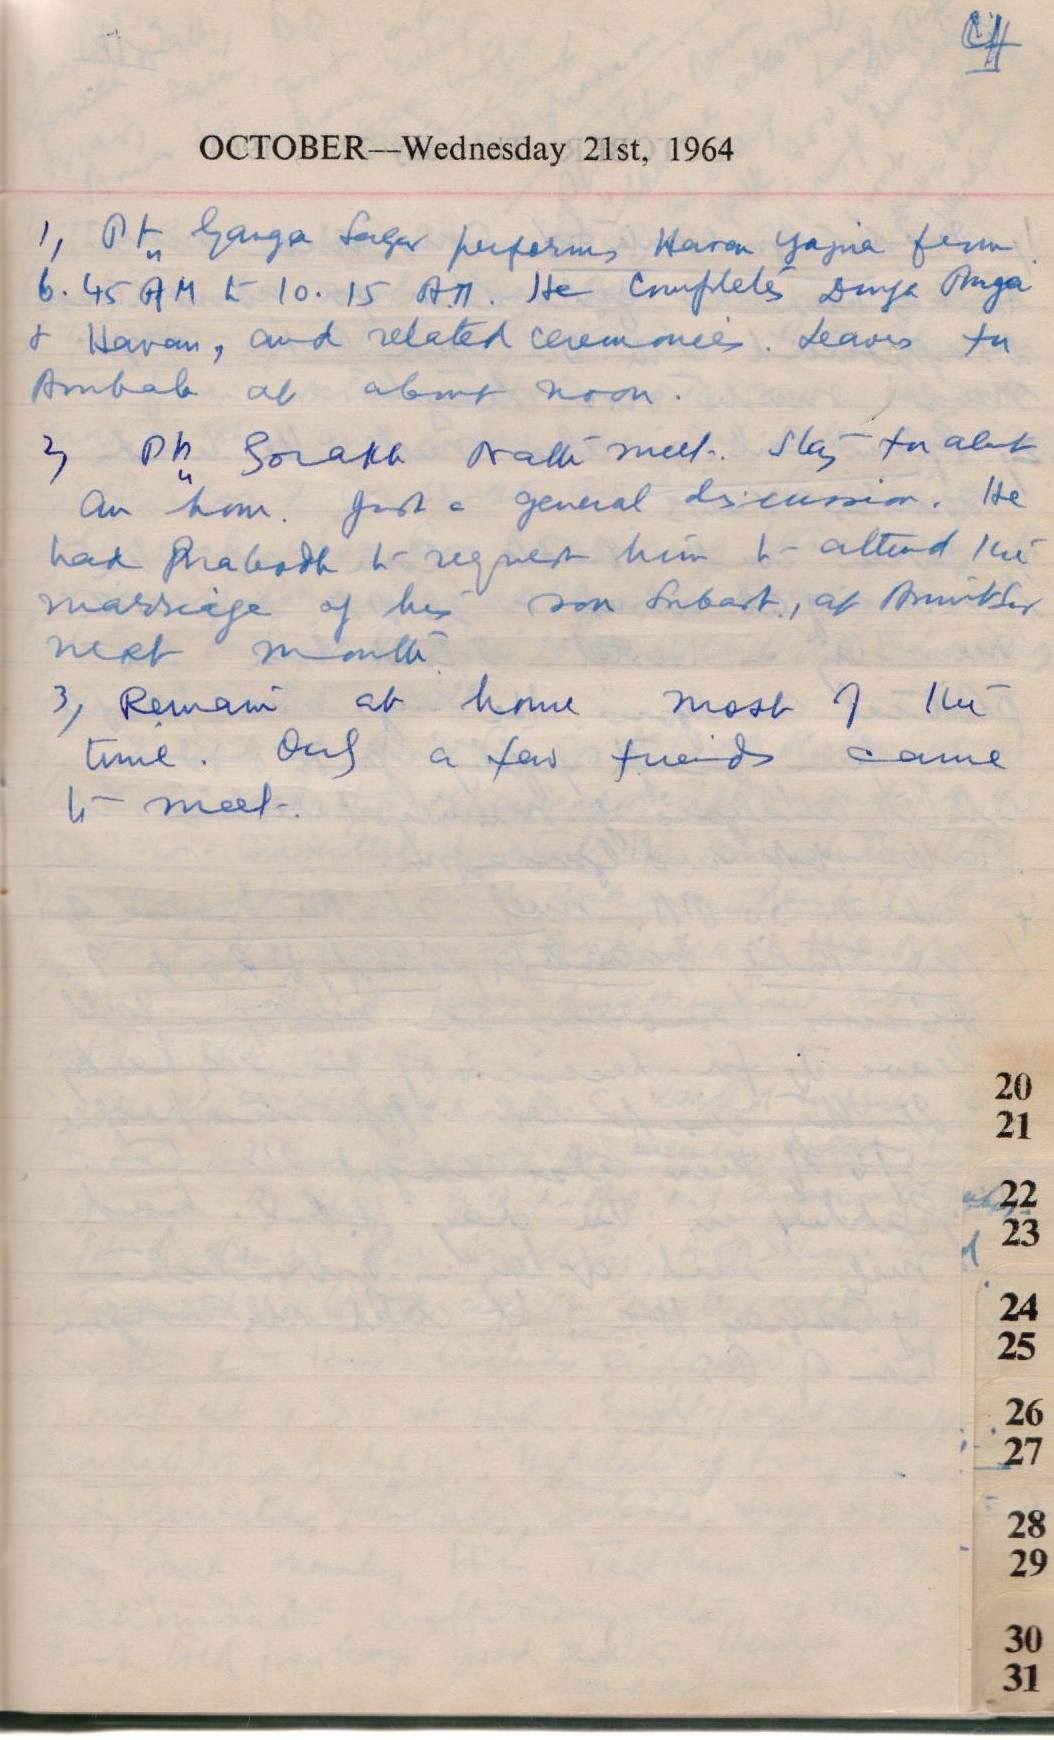 CH
OCTOBER—Wednesday 21st, 1964
1, Pt. Ganga Sagar performs Havan Yajna from
6.45 AM to 10.15 AM. He completes Durga Puja
& Havan, and related ceremonies. Leaves for
Ambala at about noon.
2, Pt. Gorakh Nath meet. Stay for about
an hour. Just a general discussion. He
had Prabodh to request him to attend the
marriage of his son Subast, at Amritsar
next month.
3, Remain at home most of the
time. Only a few friends came
to meet.
20
21
22
23
24
25
26
27
28
29
30
31